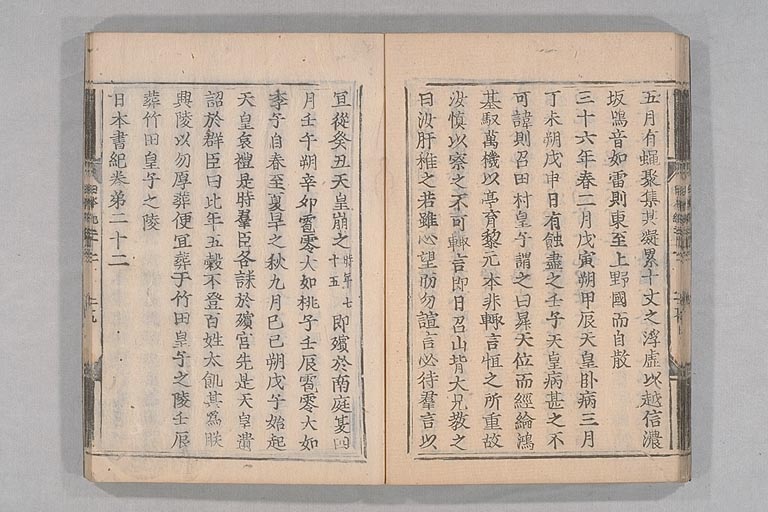 五月有蠅聚集其凝累十丈之浮虚以越信濃
坂鳴音如雷則東至上野國而自散
三十六年春二月戊寅朔甲辰天皇臥病三月
丁未朔戊申日有蝕盡之壬子天皇病甚之不
可諱則召田村皇子謂之曰昇天位而經綸鴻
基馭萬機以亭育黎元本非輙言恒之所重故
汝愼以察之不可輙言即日召山背大兄教之
曰汝肝稚之若雖心望而勿諠言必待羣言以
宜從癸丑天皇崩之時年七十五即殯於南庭夏四
月壬午朔辛卯雹零大如桃子壬辰雹零大如
李子自春至夏旱之秋九月己巳朔戊子始起
天皇喪禮是時羣臣各誄於殯宮先是天皇遺
詔於群臣曰比年五穀不登百姓太飢其爲朕
興陵以勿厚葬便宜葬于竹田皇子之陵壬辰
葬竹田皇子之陵
日本書紀卷第二十二